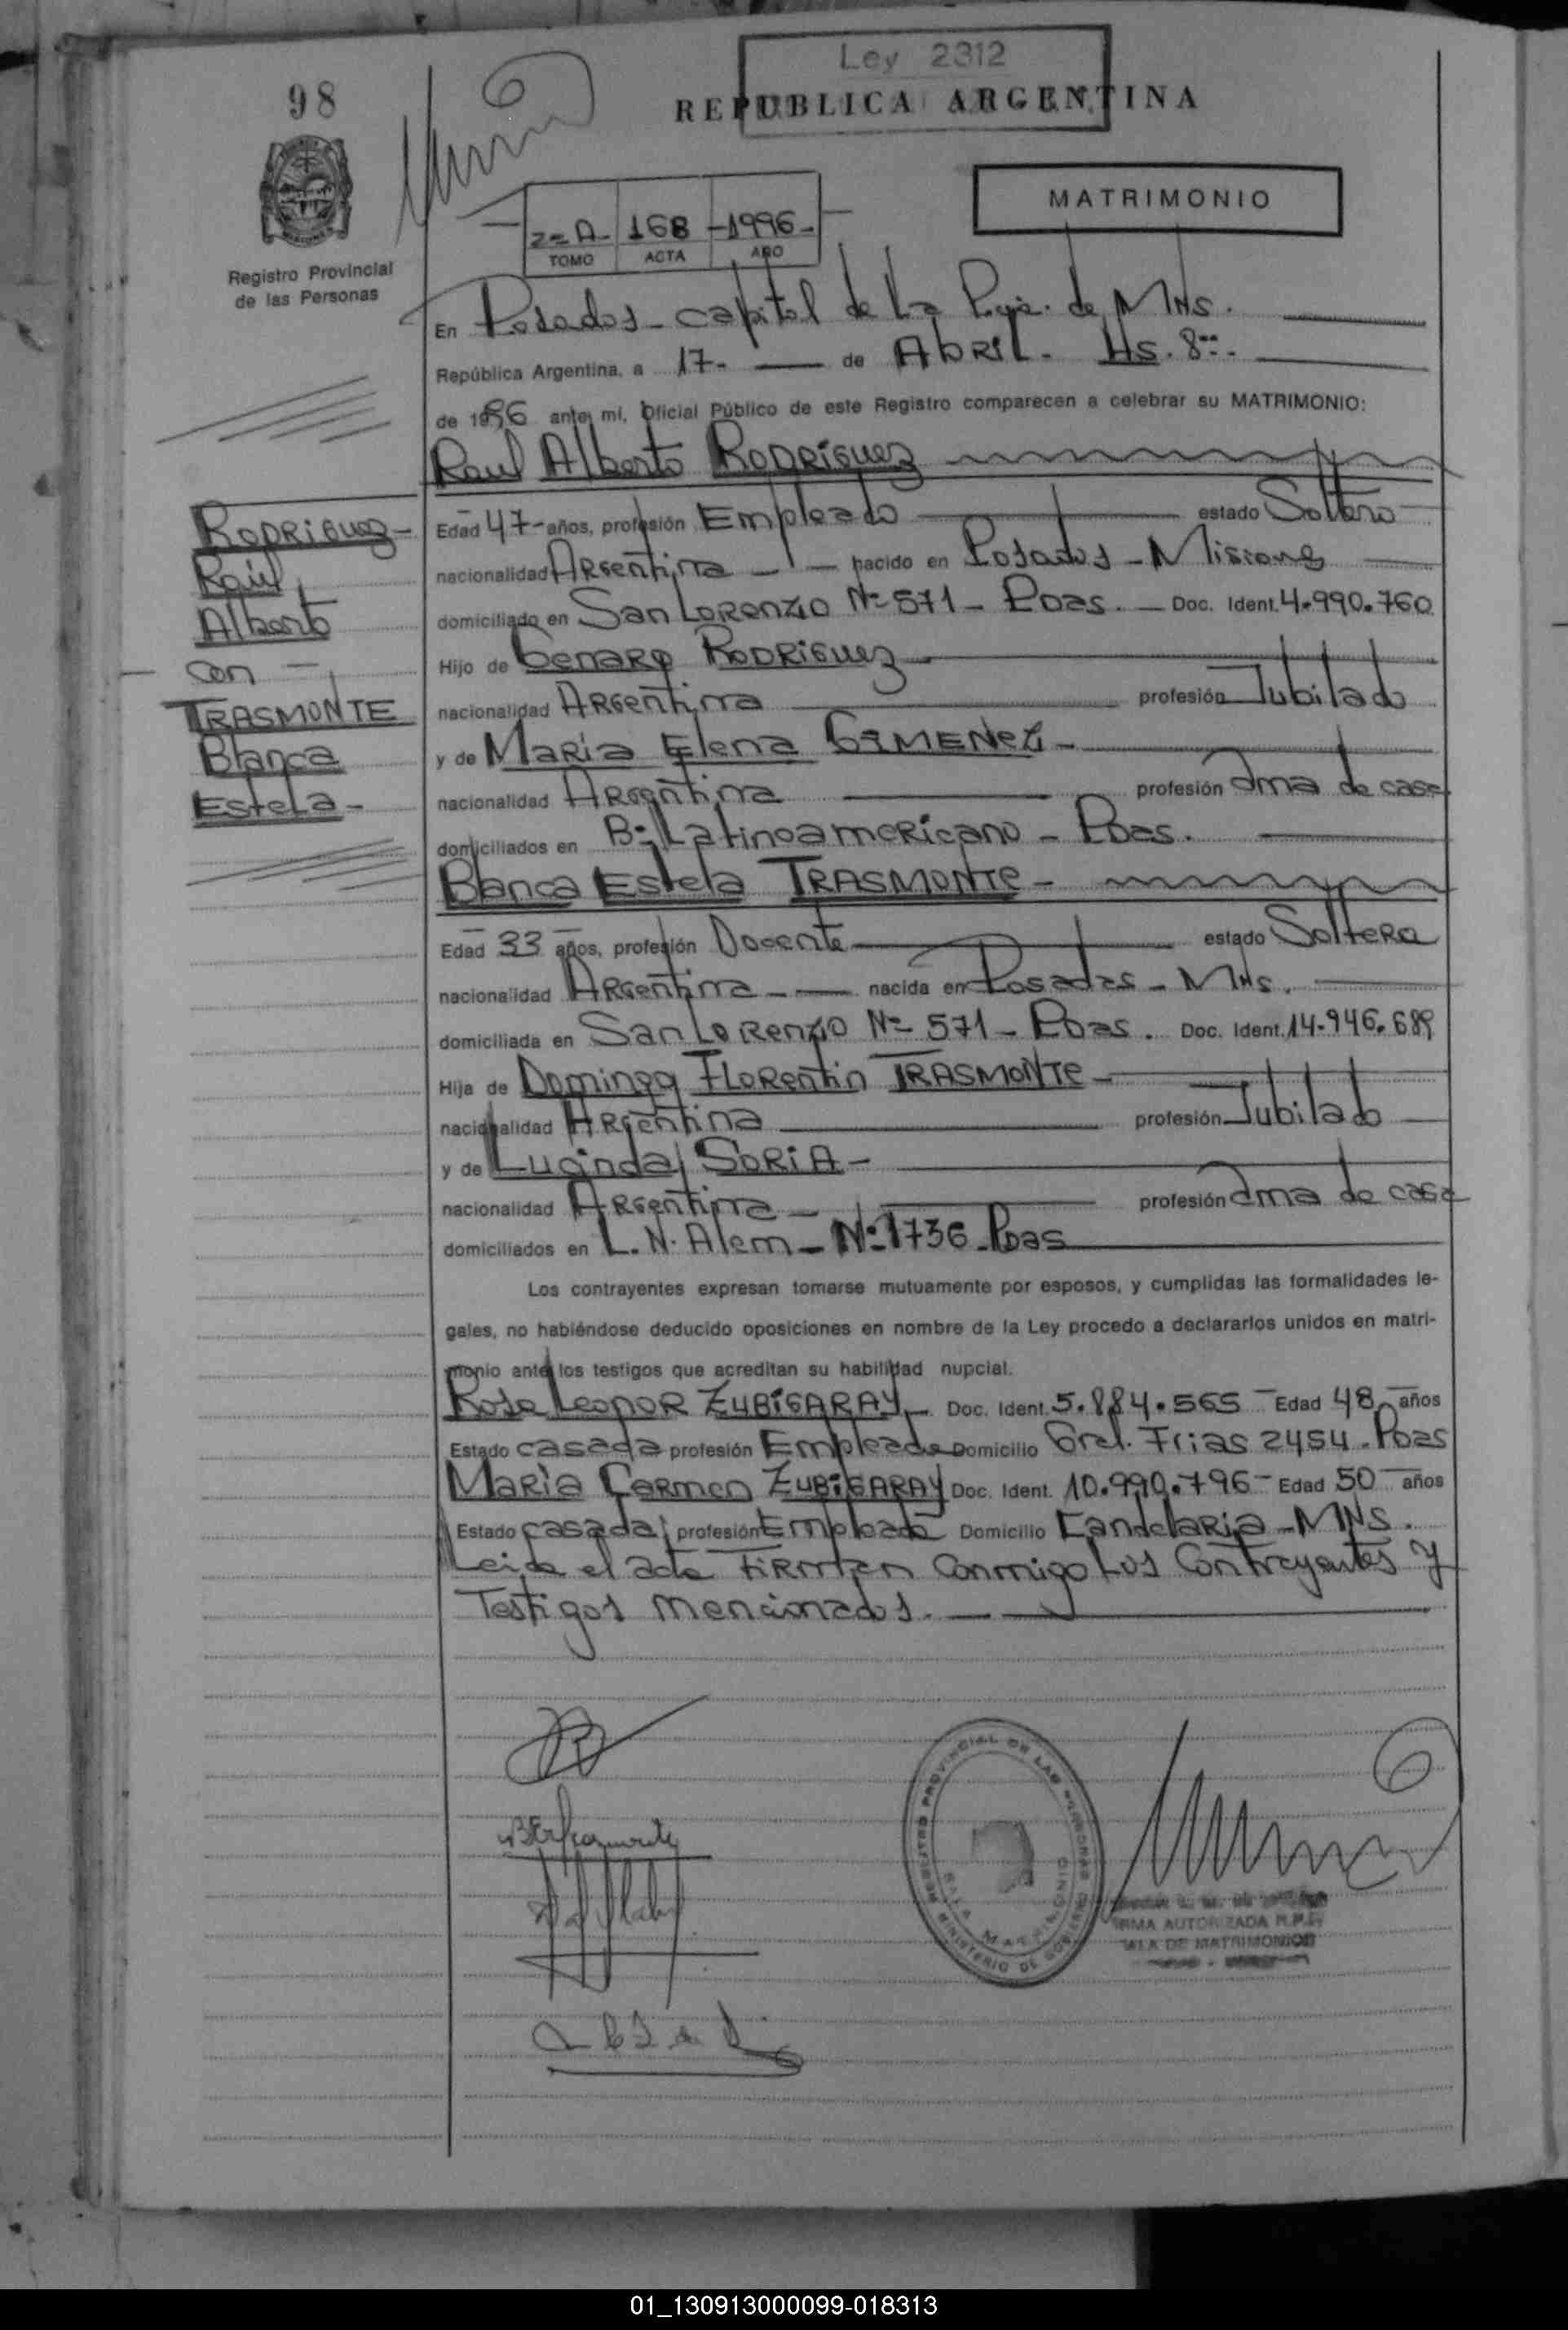 Ley 2312
98
REPUBLICA ARGENTINA
MATRIMONIO
2= A- 168 -1996-
TOMO ACTA AÑO
Registro Provincial
de las Personas
En Posadas - capital de la Pcia. de MNS.
República Argentina, a 17- de Abril. Hs. 8
de 1996 ante mí, Oficial Público de este Registro comparecen a celebrar su MATRIMONIO:
Raul Alberto RODRIGUEZ
RODRIGUEZ -
Raúl
Alberto
con -
TRASMONTE
Blanca
Estela -
Edad 47- años, profesión Empleado estado Soltero
nacionalidad Argentina - nacido en Posadas - Misiones
domiciliado en San Lorenzo Nº 571 - Pdas. - Doc. Ident. 4.990.760
Hijo de Genaro RODRIGUEZ
nacionalidad Argentina profesión Jubilado
y de Maria Elena GIMENEZ -
nacionalidad Argentina profesión ama de casa
domiciliados en Bº Latinoamericano - Pdas.
Blanca Estela TRASMONTE -
Edad 33 años, profesión Docente estado Soltera
nacionalidad Argentina - nacida en Posadas - MNS.
domiciliada en San Lorenzo Nº 571 - Pdas. Doc. Ident. 14.946.689
Hija de Domingo Florentin TRASMONTE -
nacionalidad Argentina profesión Jubilado
y de Lucinda SORIA -
nacionalidad Argentina - profesión ama de casa
domiciliados en L. N. Alem - Nº 1736 - Pdas
Los contrayentes expresan tomarse mutuamente por esposos, y cumplidas las formalidades le-
gales, no habiéndose deducido oposiciones en nombre de la Ley procedo a declararlos unidos en matri-
monio ante los testigos que acreditan su habilidad nupcial.
Rosa Leonor ZUBIGARAY - Doc. Ident. 5.884.565 - Edad 48 años
Estado casada profesión Empleada Domicilio Gral. Frias 2454 - Pdas
Maria Carmen ZUBIGARAY Doc. Ident. 10.990.796 - Edad 50 años
Estado casada profesión Empleada Domicilio Candelaria - MNS.
Leida el acta firman conmigo los contrayentes y
Testigos mencionados. -
REGISTRO PROVINCIAL DE LAS PERSONAS
MINISTERIO DE GOBIERNO
SALA MATRIMONIO
FIRMA AUTORIZADA R.P.P.
SALA DE MATRIMONIOS
01_130913000099-018313